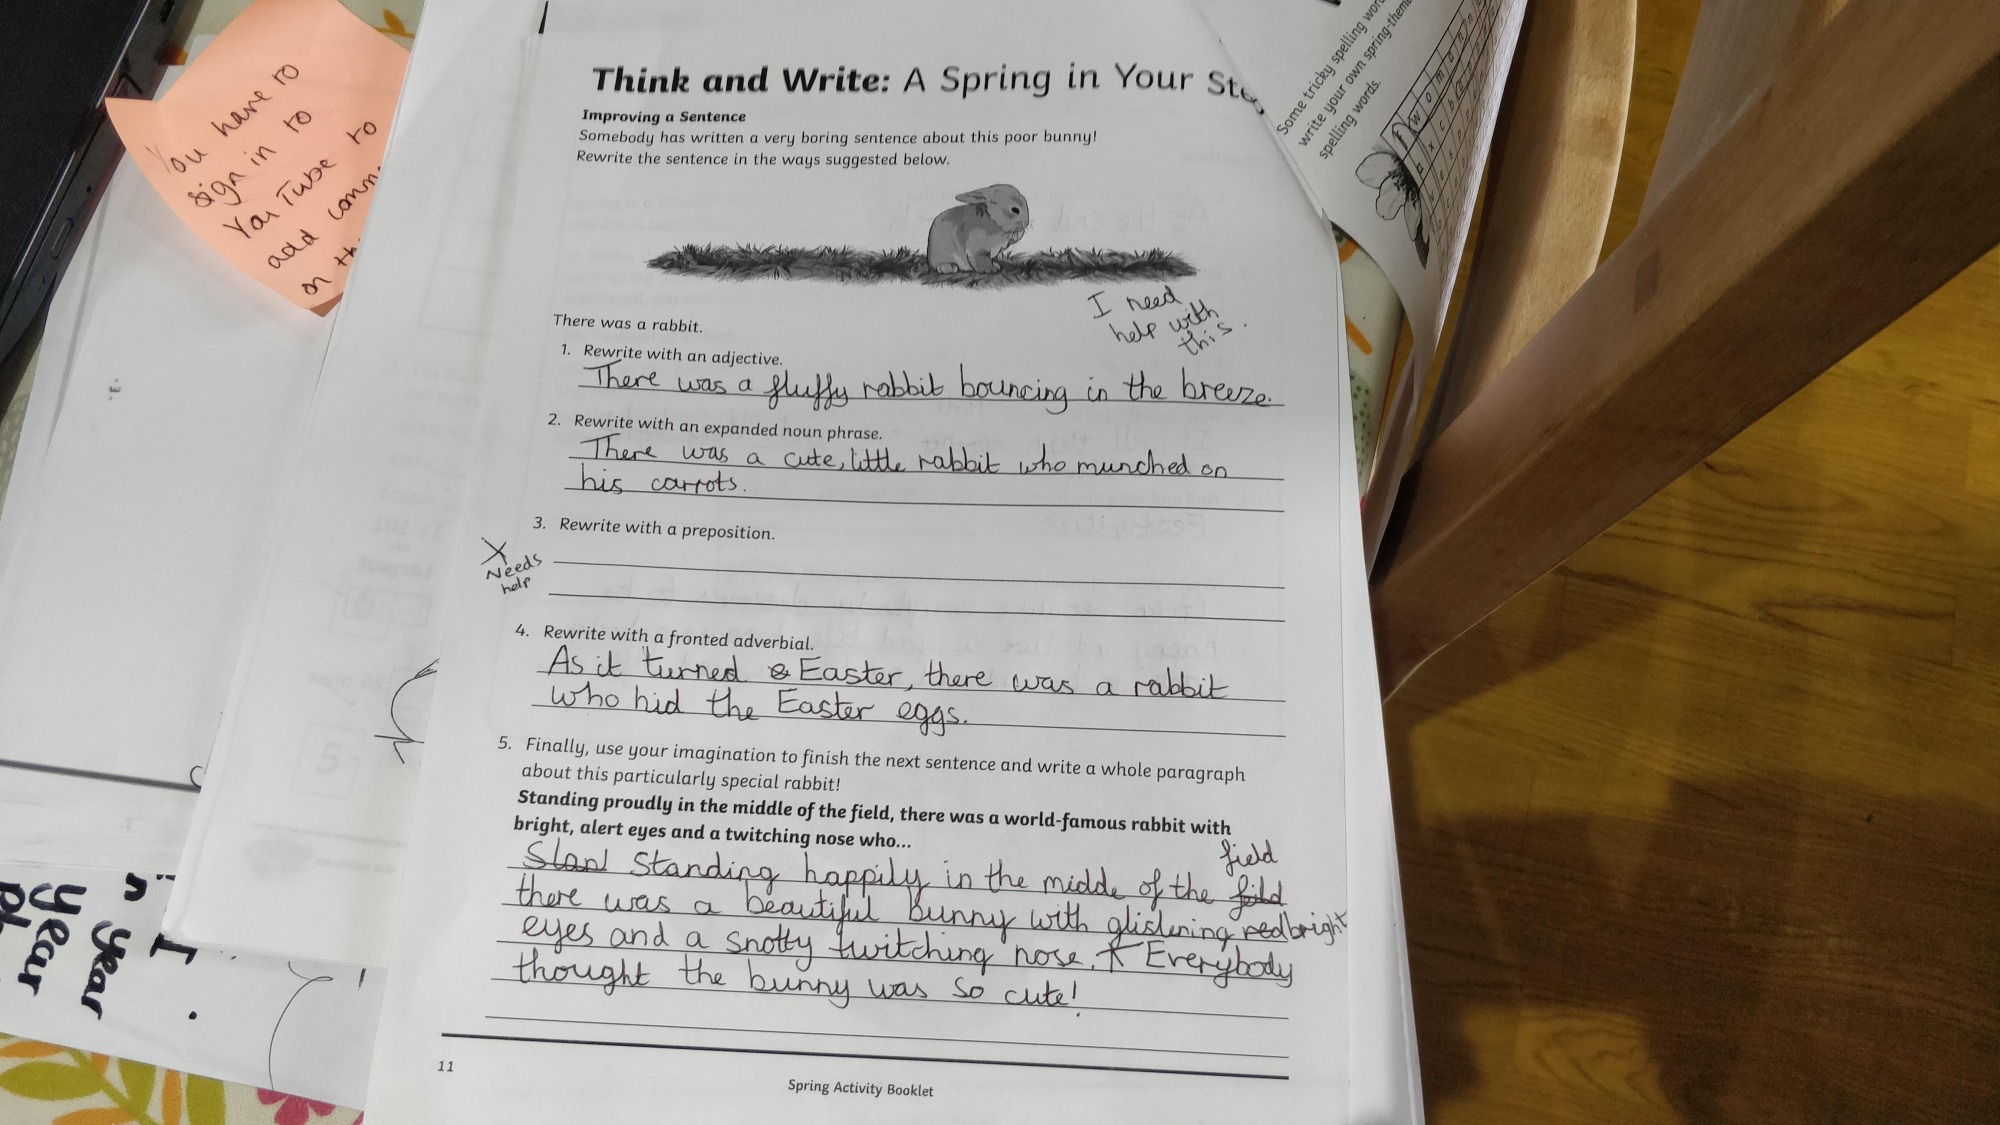 You have to
sign in to
YouTube to
add
on
Think and Write: A Spring in Your
Improving a Sentence
Somebody has written a very boring sentence about this poor bunny!
Rewrite the sentence in the ways suggested below.
I need
help with
this.
There was a rabbit.
1. Rewrite with an adjective.
There was a fluffy rabbit bouncing in the breeze.
2. Rewrite with an expanded noun phrase.
There was a cute, little rabbit who munched on
his carrots.
3. Rewrite with a preposition.
X
Needs
help
4. Rewrite with a fronted adverbial.
As it turned Easter, there was a rabbit
who hid the Easter eggs.
5. Finally, use your imagination to finish the next sentence and write a whole paragraph
about this particularly special rabbit!
Standing proudly in the middle of the field, there was a world-famous rabbit with
bright, alert eyes and a twitching nose who...
field
Standing happily in the midde of the
there was a beautiful bunny with glistening red bright
eyes and a snotty twitching nose. Everybody
thought the bunny was so cute!
11
Spring Activity Booklet
Some tricky spelling
write your own
spelling words.
year
year
I